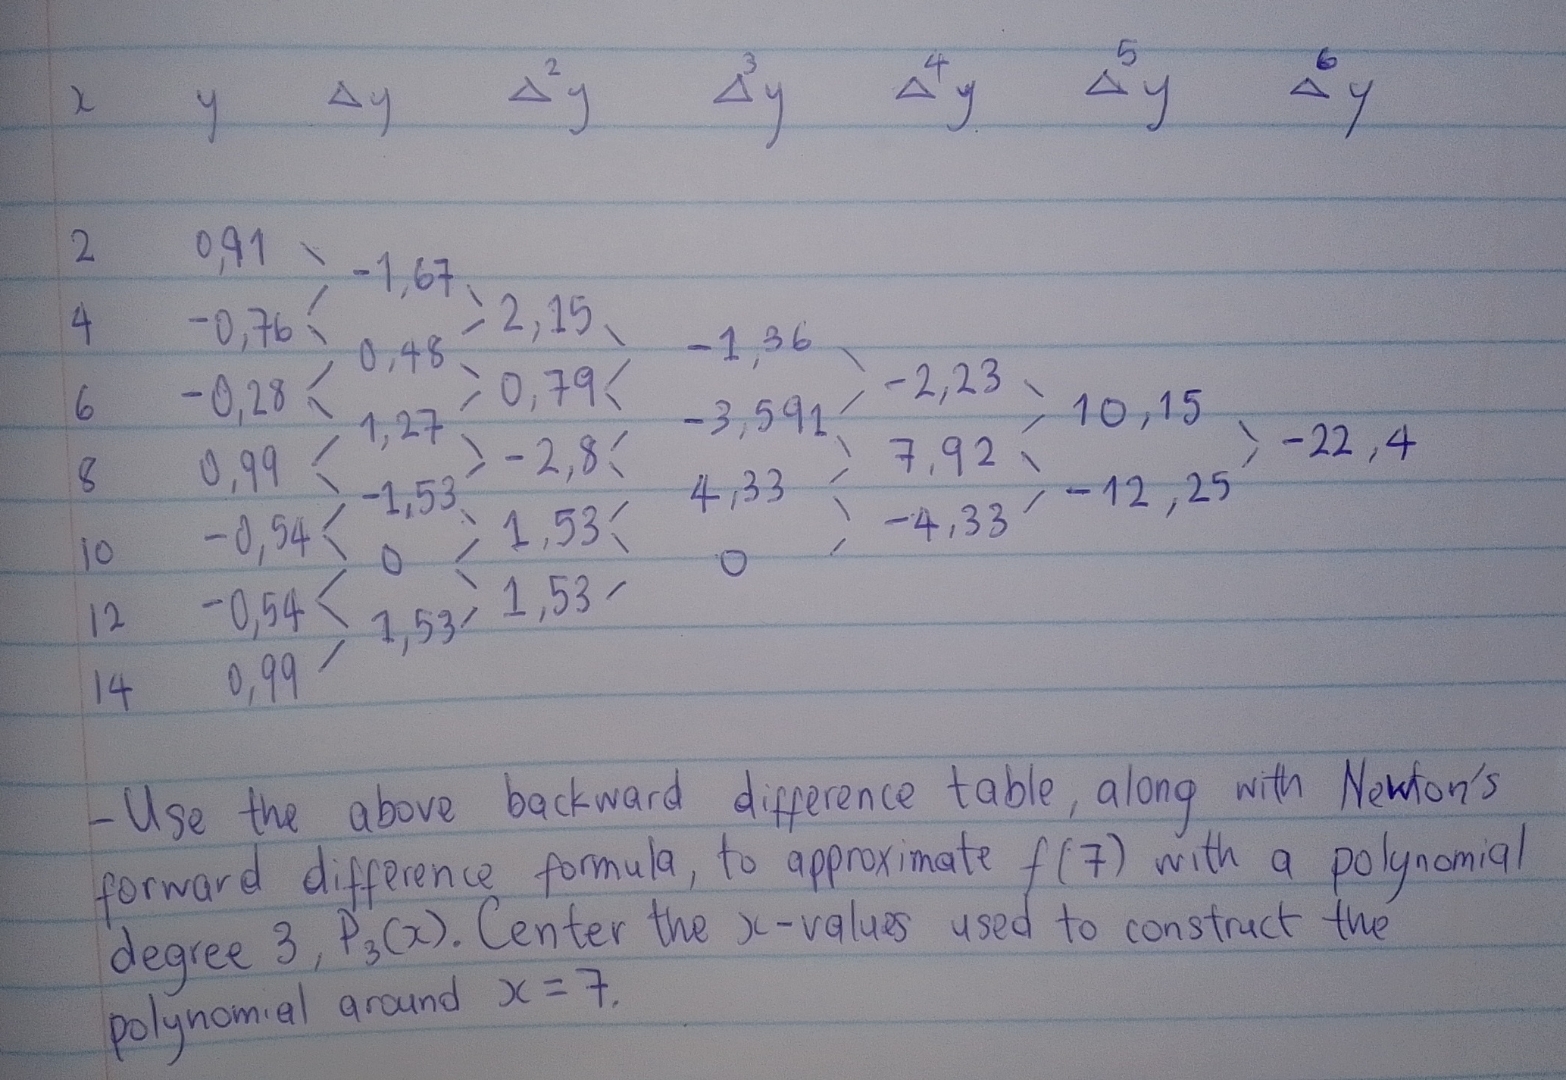 x y Δy Δ²y Δ³y Δ⁴y Δ⁵y Δ⁶y
2 0,91
-1,67
4 -0,76 2,15
0,48 -1,36
6 -0,28 0,79 -2,23
1,27 -3,591 10,15
8 0,99 -2,8 7,92 -22,4
-1,53 4,33 -12,25
10 -0,54 1,53 -4,33
0 0
12 -0,54 1,53
1,53
14 0,99
- Use the above backward difference table, along with Newton's
forward difference formula, to approximate f(7) with a polynomial
degree 3, P₃(x). Center the x-values used to construct the
polynomial around x = 7.